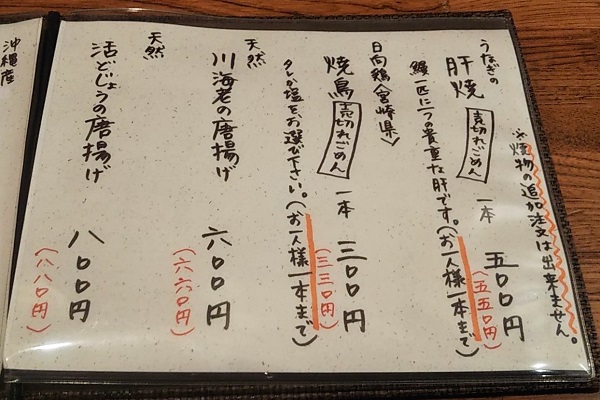 ※焼物の追加注文は出来ません。
うなぎの
肝焼 売切れごめん 一本 五〇〇円
(五五〇円)
鰻一匹に一つの貴重な肝です。(お一人様一本まで)
日向鶏<宮崎県>
焼鳥 売切れごめん 一本 三〇〇円
(三三〇円)
タレか塩をお選び下さい。(お一人様一本まで)
天然
川海老の唐揚げ 六〇〇円
(六六〇円)
天然
活どじょうの唐揚げ 八〇〇円
(八八〇円)
沖縄産